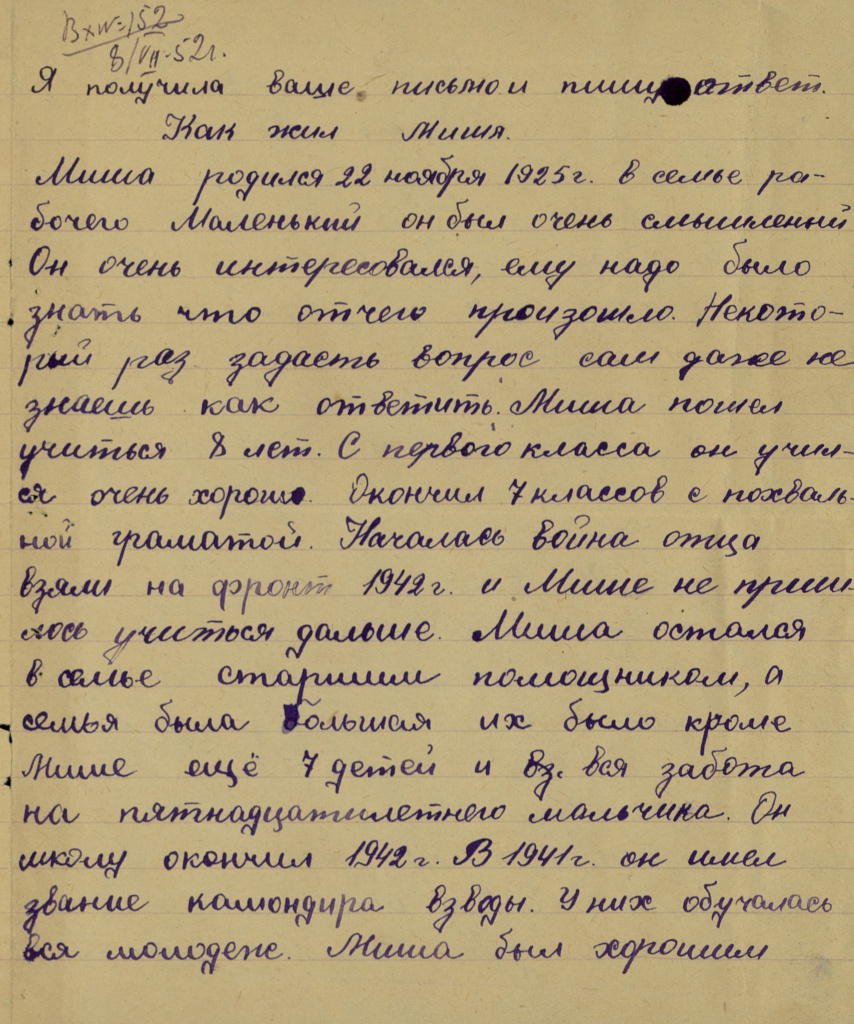 Вх №=152
8/VII-52г.
Я получила ваше письмо и пишу ответ.
Как жил Миша.
Миша родился 22 ноября 1925г. в семье ра-
бочего Маленький он был очень смышленый
Он очень интересовался, ему надо было
знать что отчего произошло. Некото-
рый раз задасть вопрос сам даже не
знаешь как ответить. Миша пошел
учиться 8 лет. С первого класса он учил-
ся очень хорошо. Окончил 7 классов с похваль-
ной граматой. Началась война отца
взяли на фронт 1942г. и Мише не приш-
лось учиться дальше. Миша остался
в семье старшим помощником, а
семья была большая их было кроме
Мише ещё 7 детей и вз. вся забота
на пятнадцатилетнего мальчика. Он
школу окончил 1942г. В 1941г. он имел
звание камондира взводы. У них обучалась
вся молодеж. Миша был хорошим